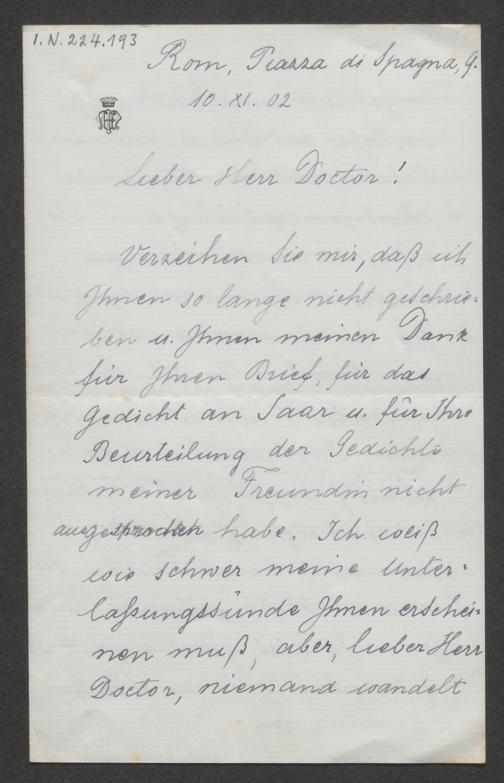 I.N. 224.193
Rom, Piazza di Spagna, 9.
10. XI. 02
Lieber Herr Doctor!
Verzeihen Sie mir, daß ich
Ihnen so lange nicht geschrie-
ben u. Ihnen meinen Dank
für Ihren Brief, für das
Gedicht an Saar u. für Ihre
Beurteilung der Gedichte
meiner Freundin nicht
ausgesprochen habe. Ich weiß
wie schwer meine Unter-
laßungssünde Ihnen erschei-
nen muß, aber, lieber Herr
Doctor, niemand wandelt